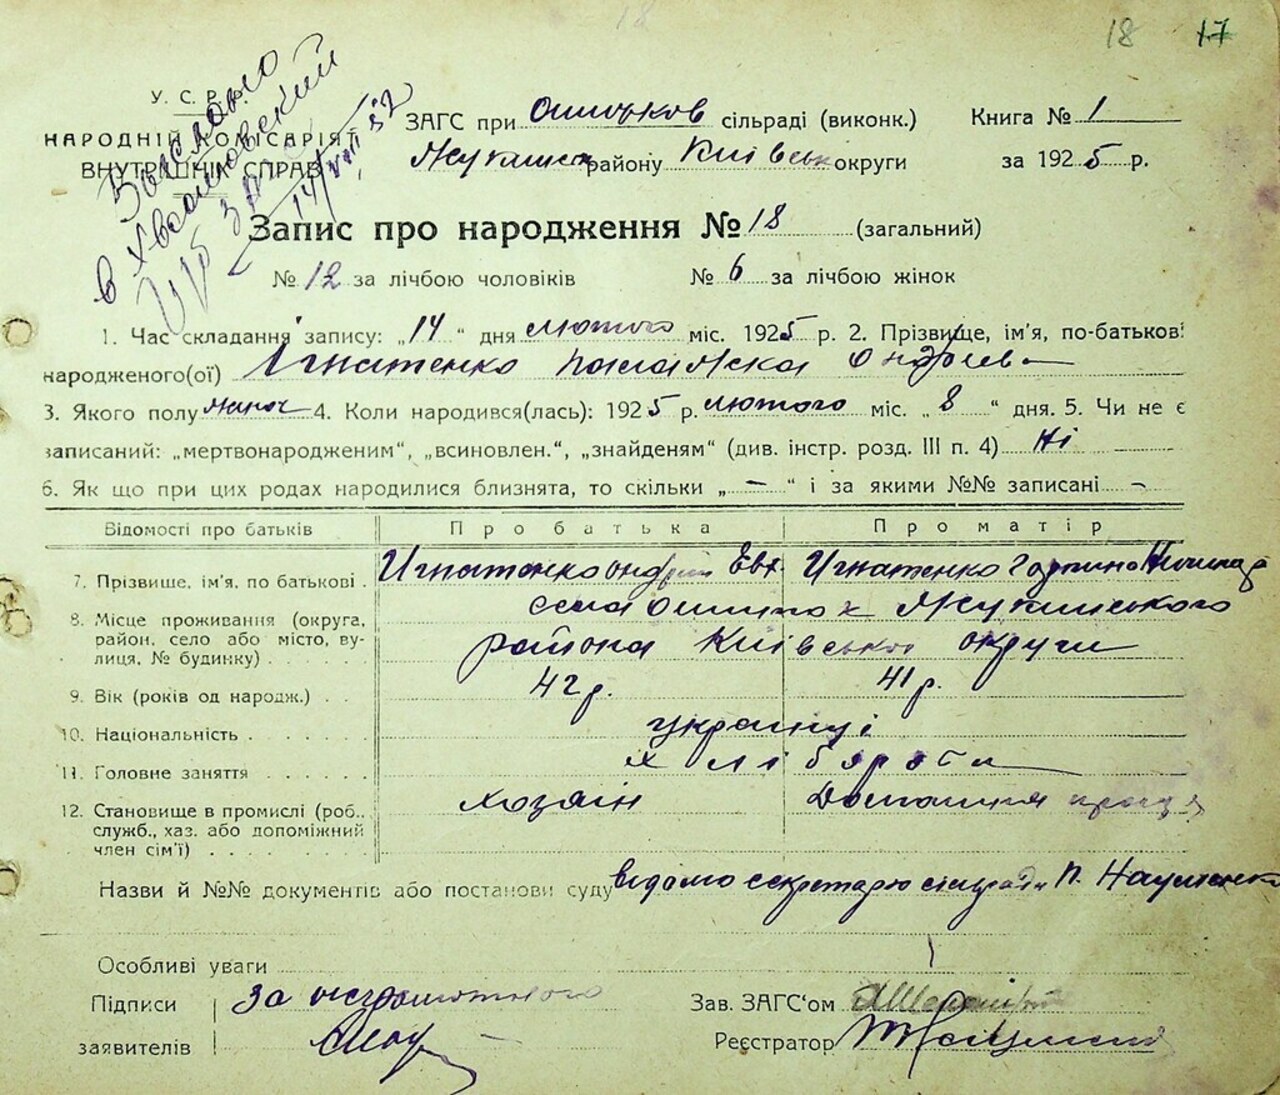 18 17
У. С. Р. Р.
НАРОДНІЙ КОМІСАРІЯТ
ВНУТРІШНІХ СПРАВ
Выслано
в Хвастовский
ЗАГС
14/VIII 52
ЗАГС при сільраді (виконк.) Книга № 1
району Київськ округи за 1925 р.
Запис про народження № 18 (загальний)
№ 12 за лічбою чоловіків № 6 за лічбою жінок
1. Час складання запису: „14“ дня лютого міс. 1925 р. 2. Прізвище, ім'я, по-батькові
народженого(ої) Ігнатенко Параска Андрієва
3. Якого полу жіноч 4. Коли народився(лась): 1925 р. лютого міс. „8“ дня. 5. Чи не є
записаний: „мертвонародженим“, „всиновлен.“, „знайденям“ (див. інстр. розд. III п. 4) Ні
6. Як що при цих родах народилися близнята, то скільки „ — “ і за якими №№ записані —
Відомості про батьків Про батька Про матір
7. Прізвище, ім'я, по батькові . Игнатенко Андрій Евх. Игнатенко
8. Місце проживання (округа, район, село або місто, ву-
лиця, № будинку) . . . . . села
района Київськоі округи
9. Вік (років од народж.) . . 42 р. 41 р.
10. Національність . . . . . . українці
11. Головне заняття . . . . . . хлібороби
12. Становище в промислі (роб., служб., хаз. або допоміжний
член сім'ї) . . . . . . . . хозяін Домашня праця
Назви й №№ документів або постанови суду відомо секретарю сільради П. Науменко
Особливі уваги
Підписи заявителів за неграмотного
Зав. ЗАГС'ом
Реєстратор